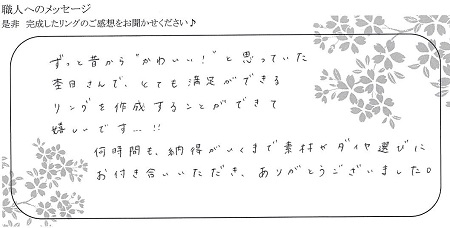 職人へのメッセージ
是非 完成したリングのご感想をお聞かせください♪
ずっと昔から"かわいい!"と思っていた
杢目さんで、とても満足ができる
リングを作成することができて
嬉しいです...!!
何時間も、納得がいくまで素材やダイヤ選びに
お付き合いいただき、ありがとうございました。